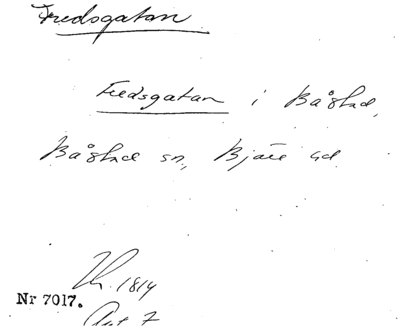 Fredsgatan
Fredsgatan i Båstad,
Båstad sn, Bjäre hd
1814
Nr 7017.